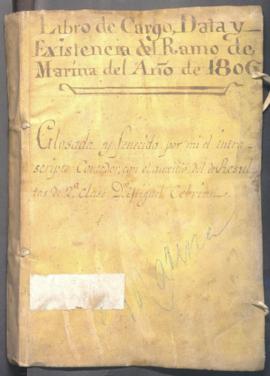 Libro de Cargo, Data y
Existencia del Ramo de
Marina del Año de 1806
Glosada y fenecida por mi el infra-
scripto Contador, con el auxilio del de Resul-
tas de 2ª clase Dn Miguel Cebrian
Marina